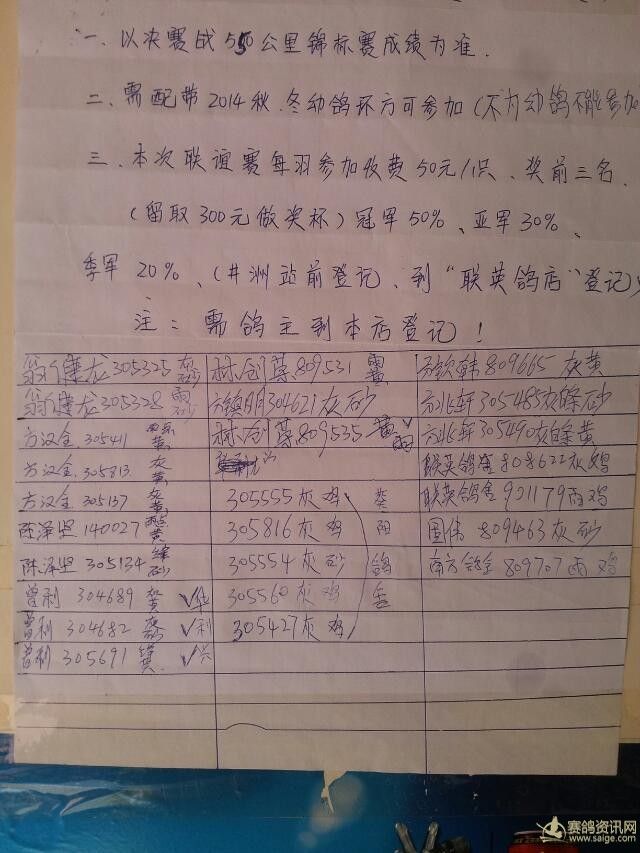 一、以决赛战550公里锦标赛成绩为准.
二、需配带2014秋.冬幼鸽环方可参加(不为幼鸽不能参加
三、本次联谊赛每羽参加收费50元/只、奖前三名.
(留取300元做奖杯)冠军50%、亚军30%、
季军20%、(井洲站前登记、到"联英鸽店"登记)
注:需鸽主到本店登记!
305325 灰砂 林创 809531 雨黄 方钦韩809665灰黄
305328 雨砂 304621灰砂 方兆轩305485灰白条砂
方汉全 305411 黄 林创 809535 黄 方兆轩305490灰白条黄
方汉全 305813 灰黄 联英鸽舍808622灰鸡
方汉全 305137 灰黄 305555灰鸡 联英鸽舍901179雨鸡
陈泽坚 140027 黄 305816灰鸡 阳 国伟 809463灰砂
陈泽坚 305134 绛砂 305554灰砂 鸽 南方鸽舍809707雨鸡
曾利 304689 灰黄 ✓ 305560灰鸡 舍
曾利 304682 ✓利 305427灰鸡
曾利 305691 ✓兴
赛鸽资讯网
www.saige.com